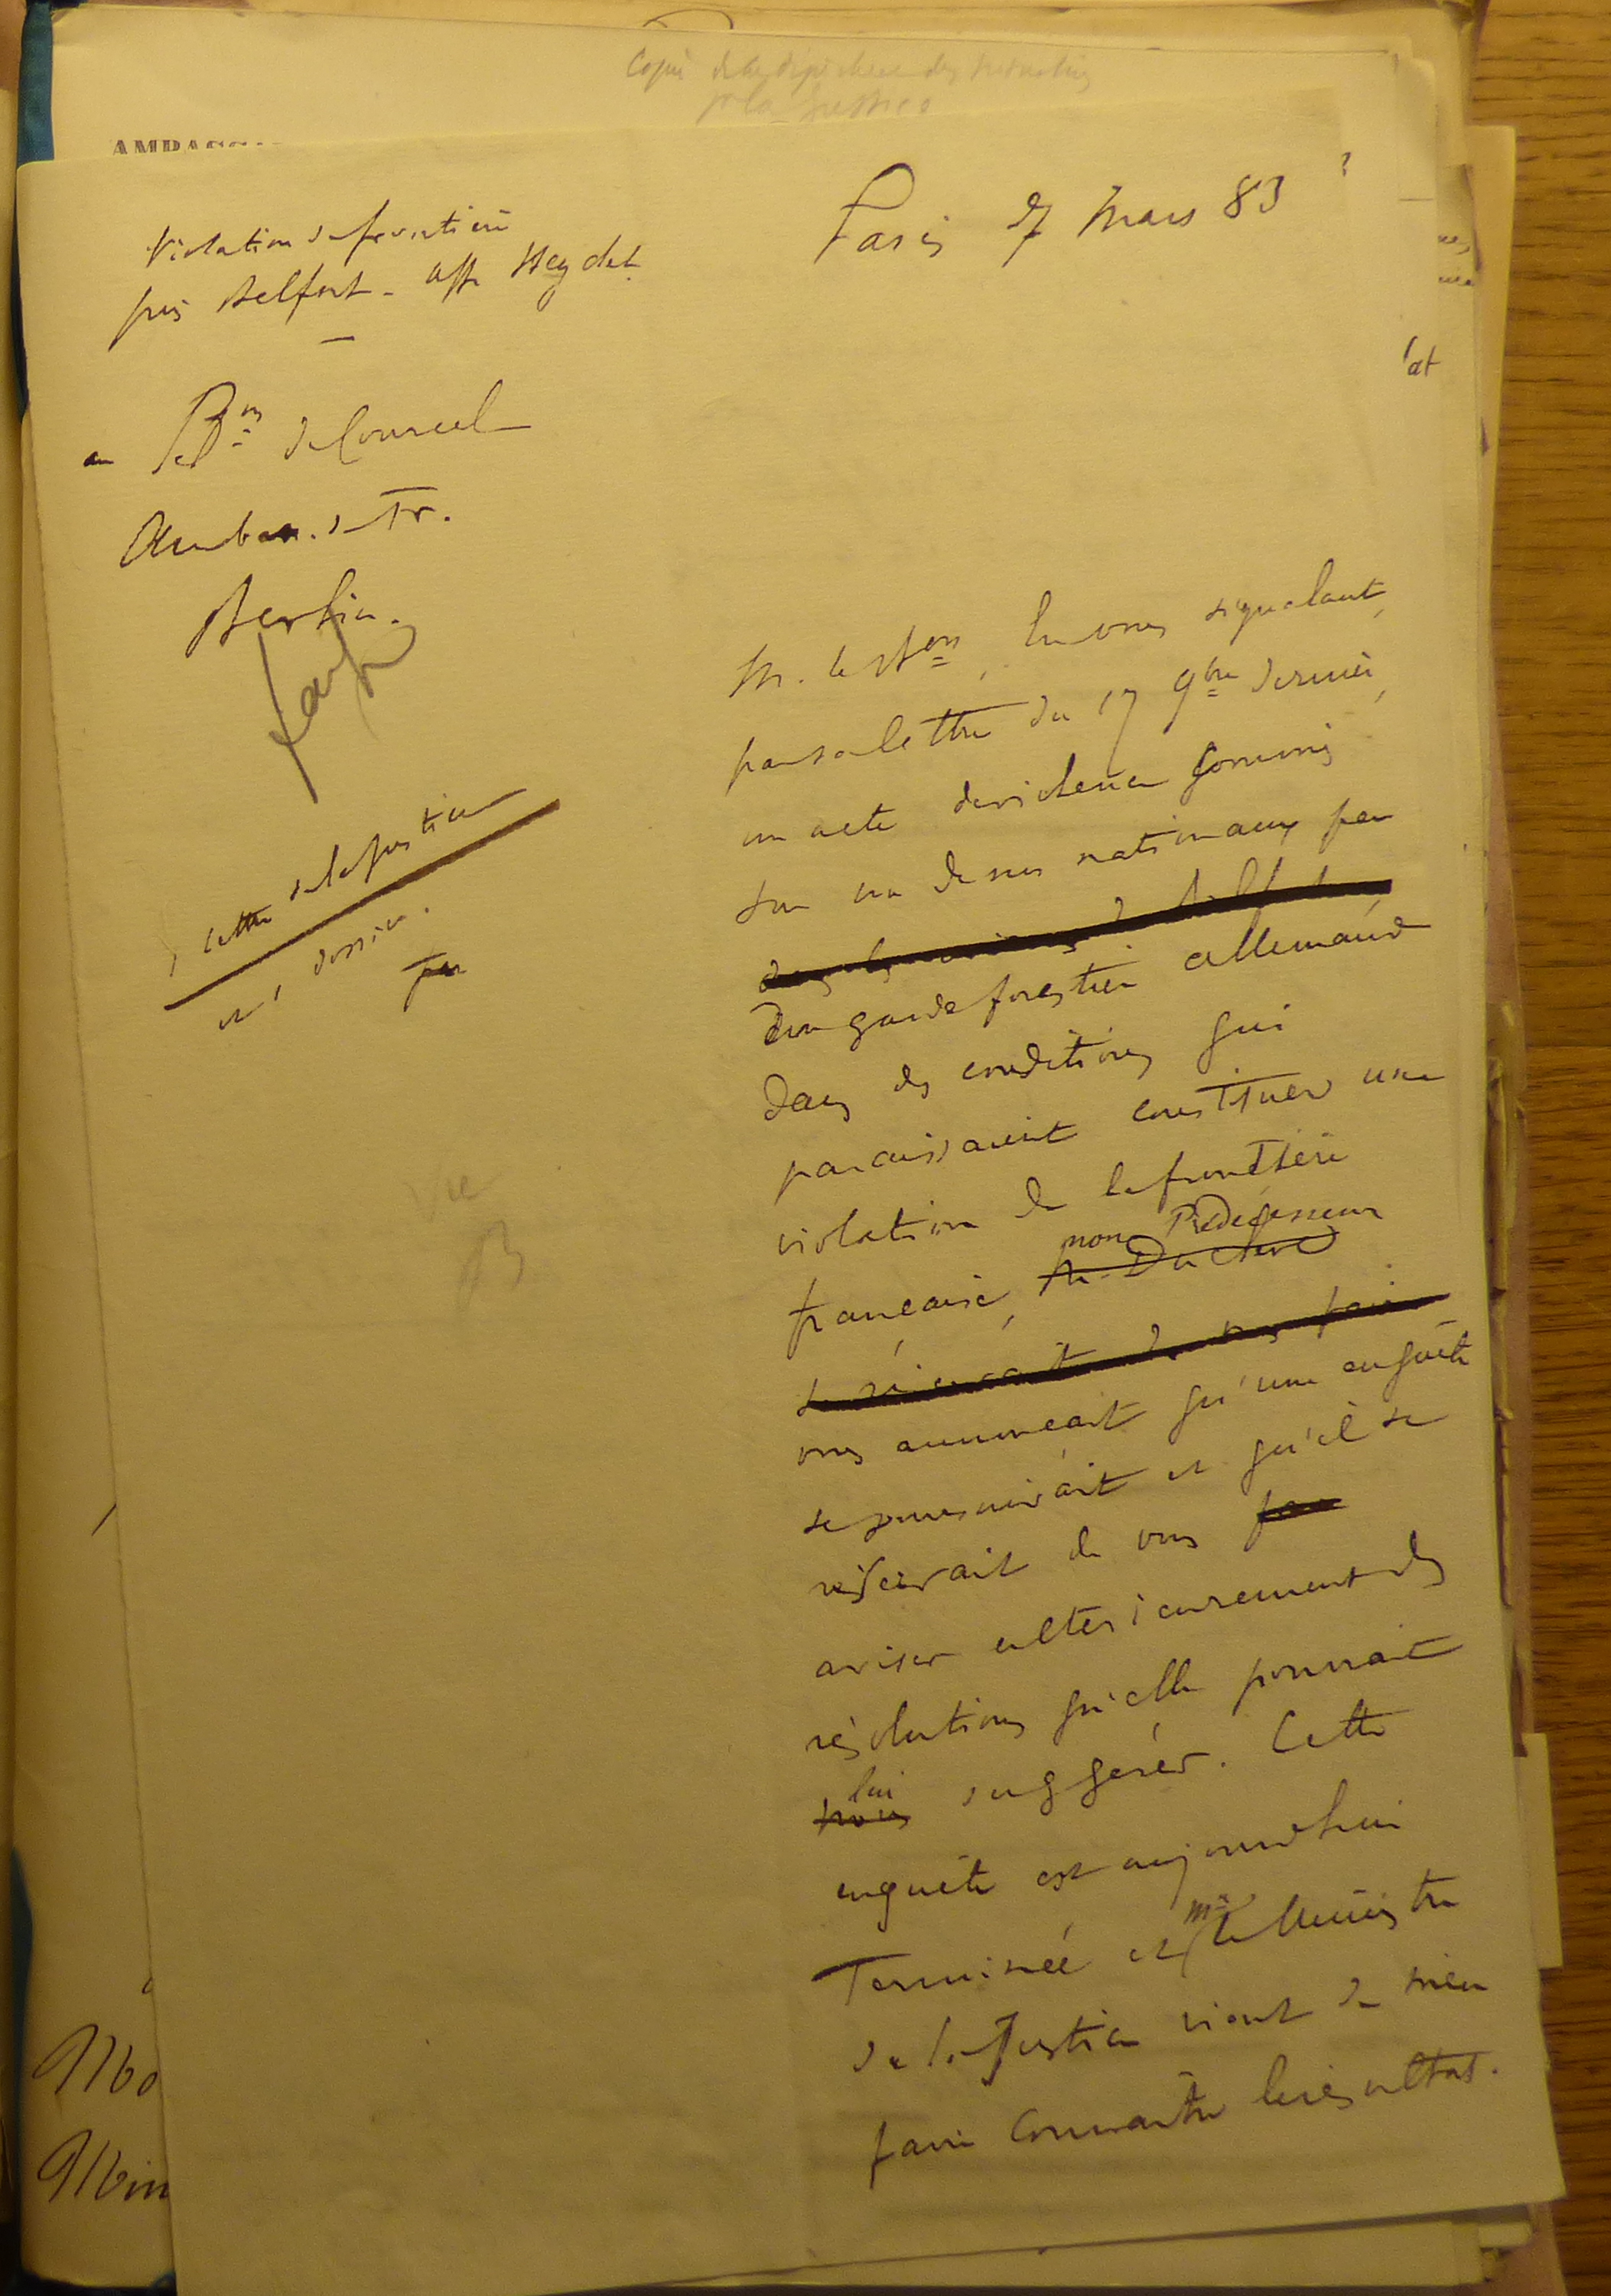 AMBASS
Paris 27 Mars 83
Violation de frontière
près Belfort - aff. Heydet
au Bon de Courcel
Ambas. de Fr.
Berlin.
lettre de la justice
et dossier.
M. le Bon, En vous signalant,
par sa lettre du 17 9bre dernier,
un acte de violence commis
sur un de nos nationaux par
d'un garde forestier allemand
dans des conditions qui
paraissaient constituer une
violation de la frontière
française, M. Duclerc mon Prédécesseur
vous annonçait qu'une enquête
se poursuivait et qu'il se
réservait de vous
aviser ultérieurement des
résolutions qu'elle pourrait
nous lui suggérer. Cette
enquête est aujourd'hui
Terminée et Mr le Ministre
de la Justice vient de m'en
faire connaître le résultat.